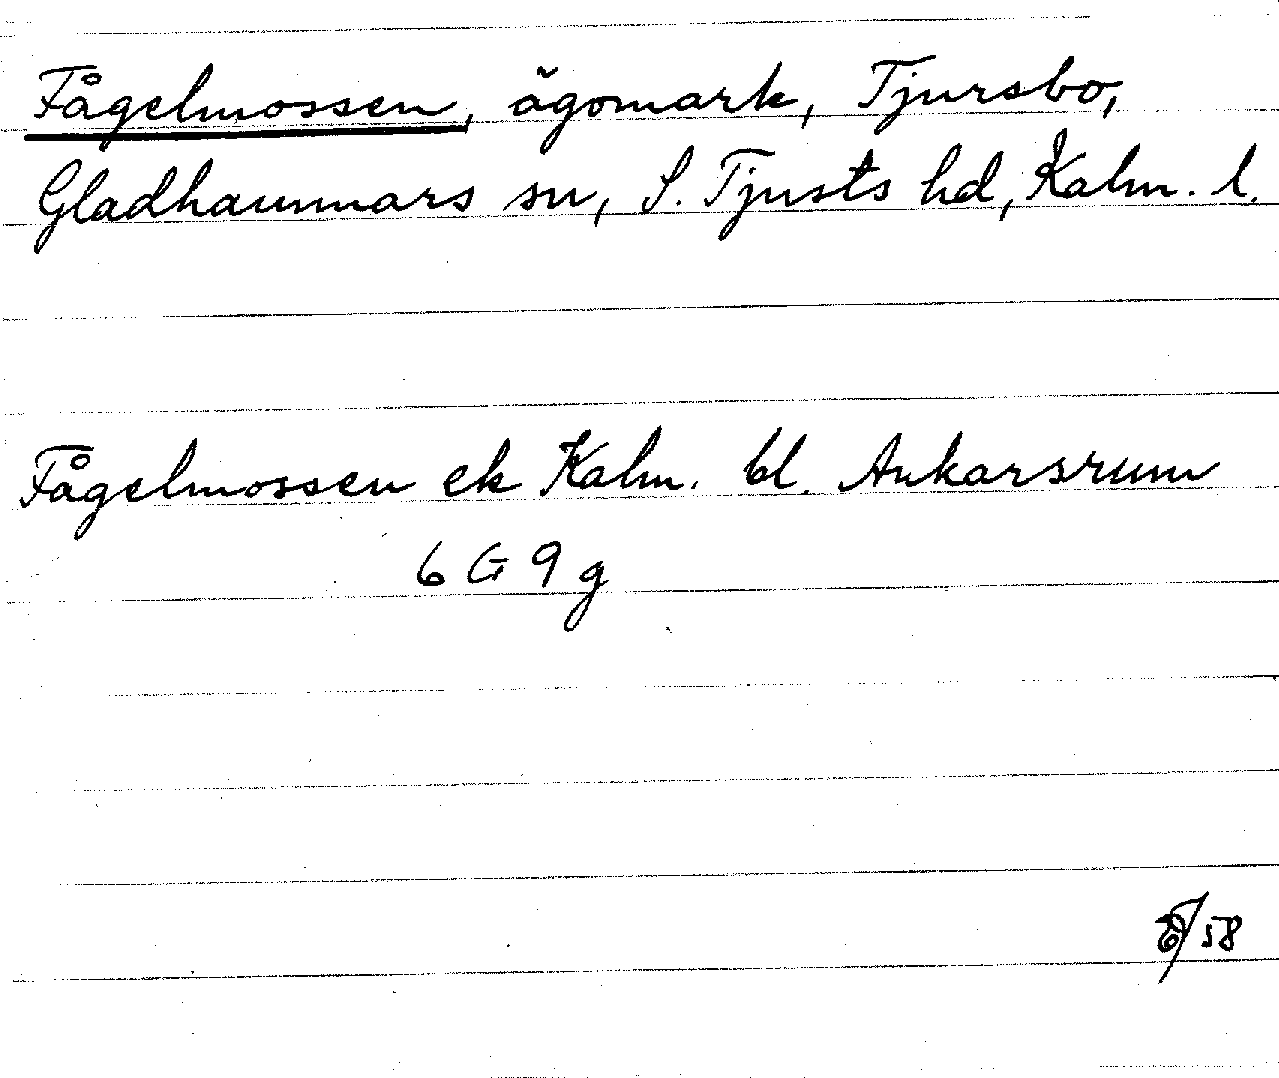 Fågelmossen, ägomark, Tjursbo,
Gladhammars sn, S. Tjusts hd, Kalm. l.
Fågelmossen ek Kalm. bl. Ankarsrum
6 G 9 g
/58